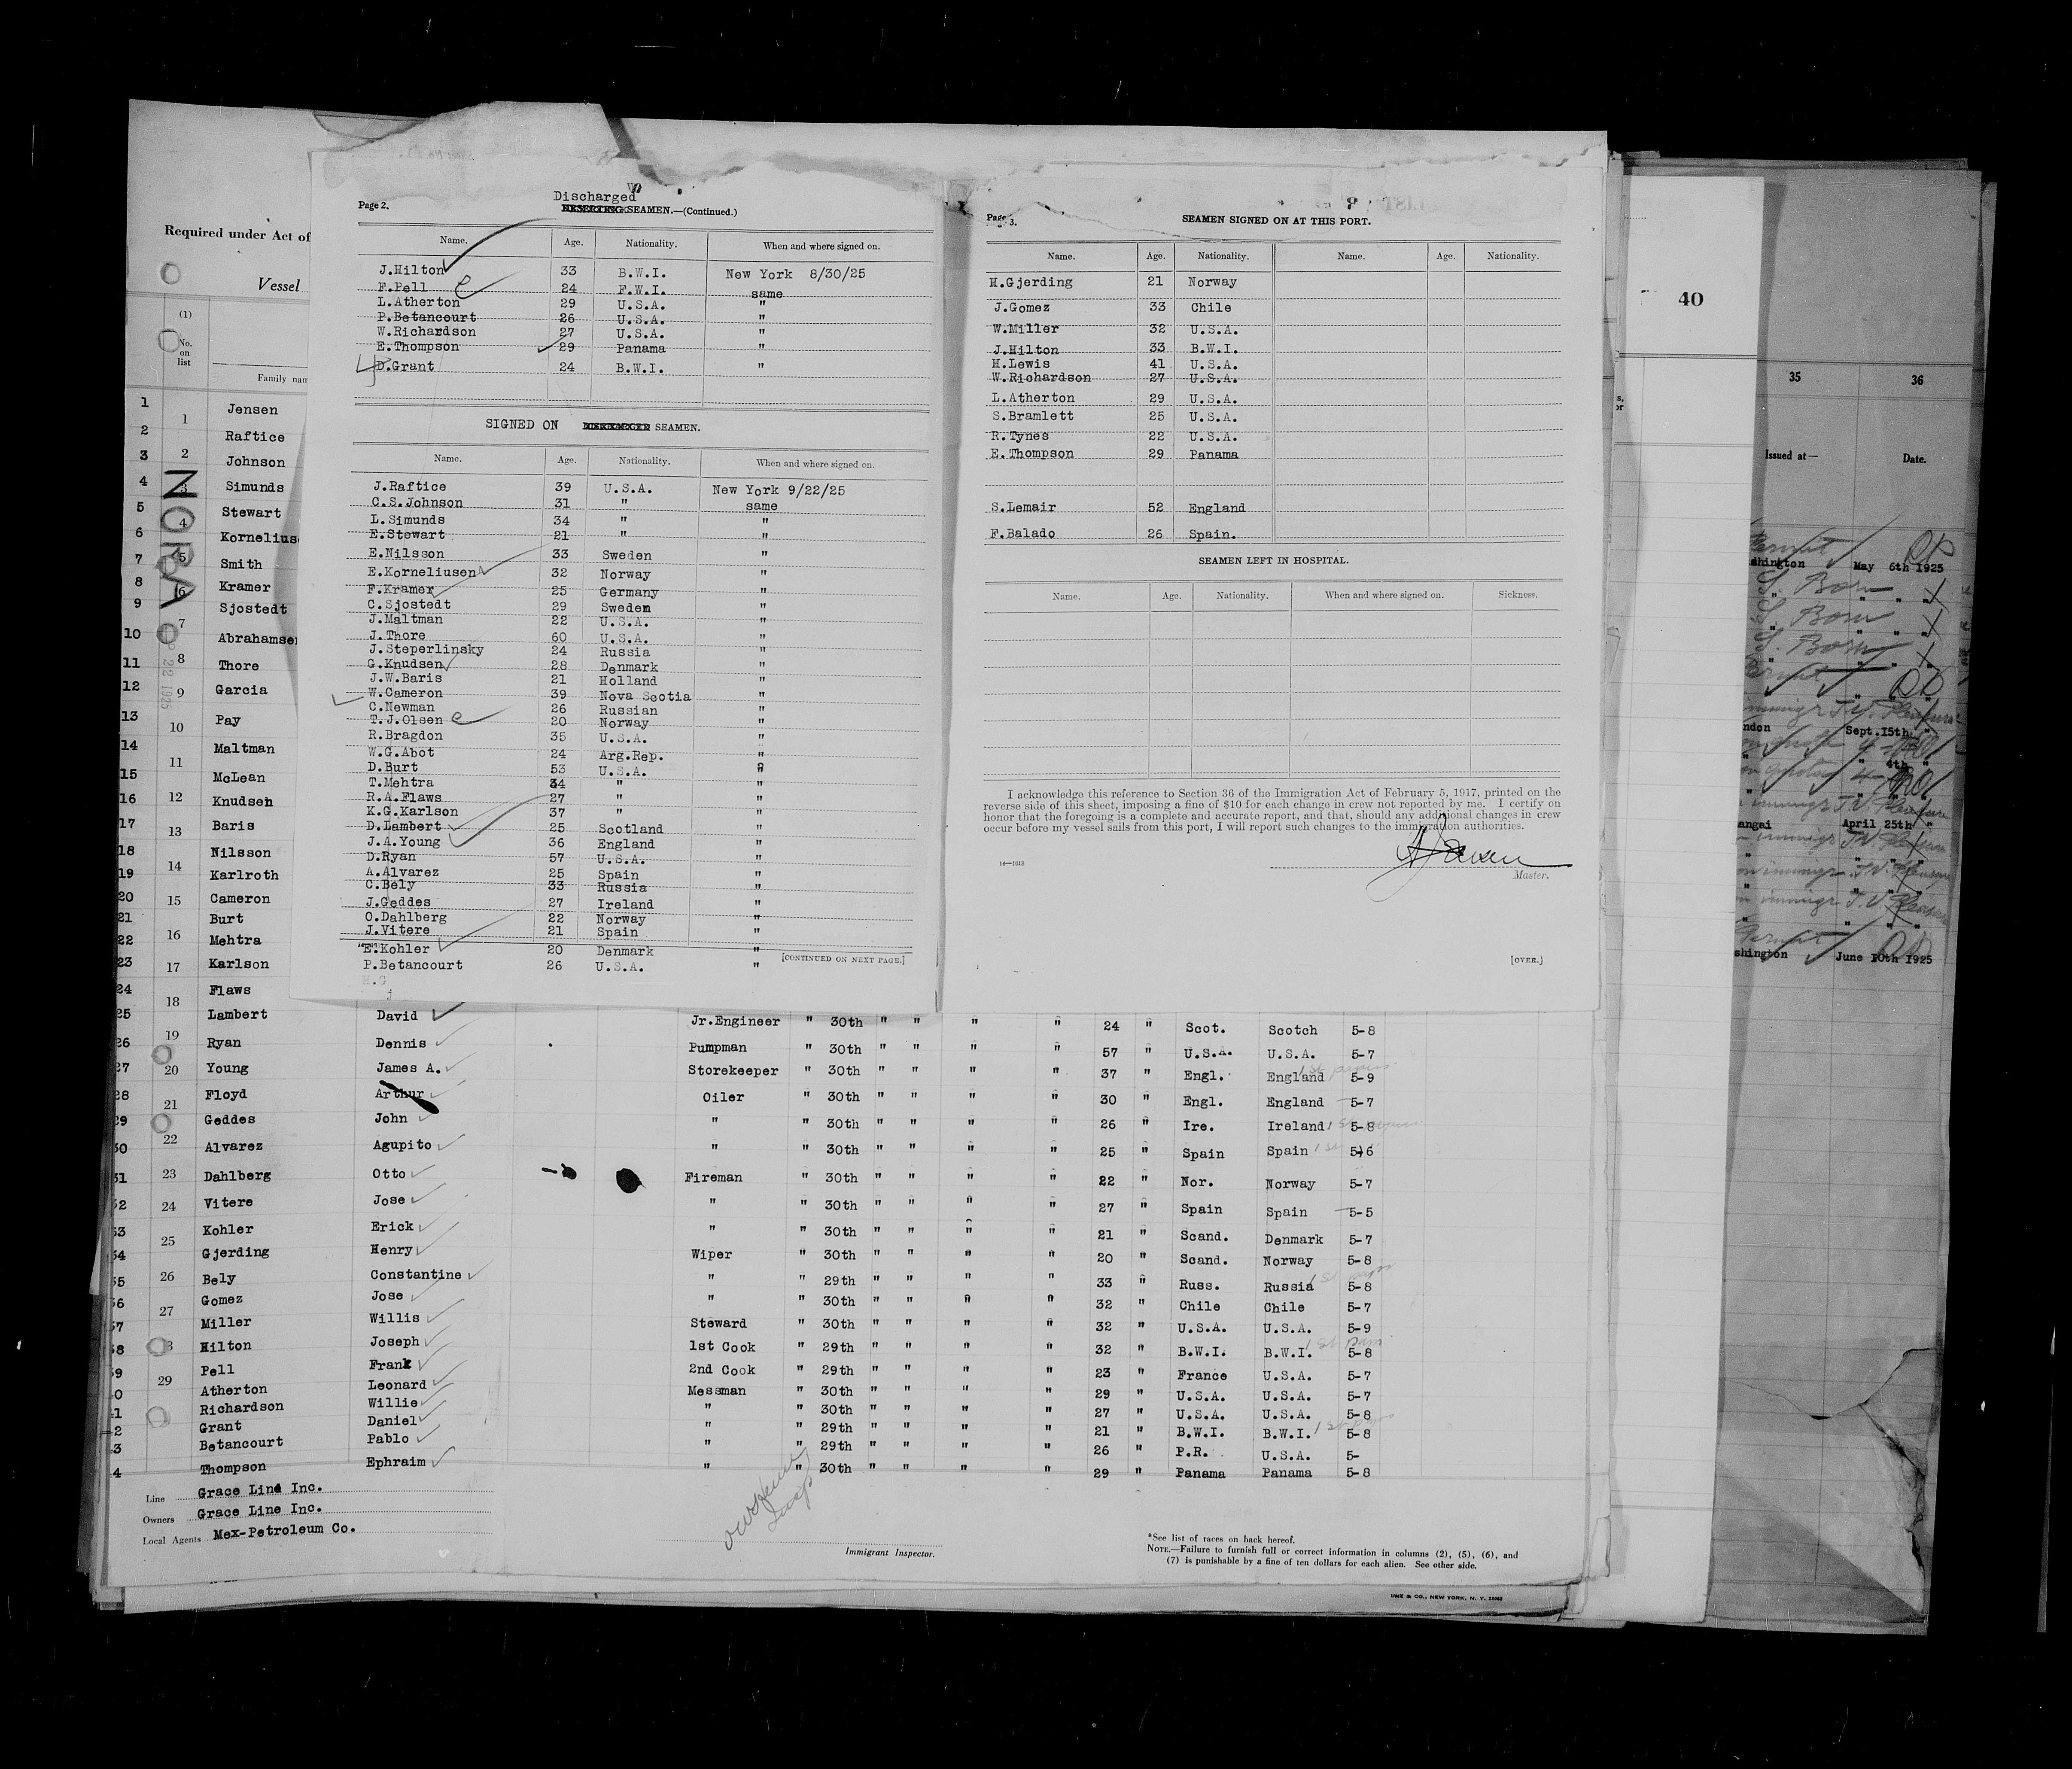 Required under Act of
Vessel
(1)
No. on list
Family nam
Discharged
Page 2.
SEAMEN.—(Continued.)
Name. Age. Nationality. When and where signed on.
J.Hilton 33 B.W.I. New York 8/30/25
F.Pell 24 F.W.I. same
L.Atherton 29 U.S.A. "
P.Betancourt 26 U.S.A. "
W.Richardson 27 U.S.A. "
E.Thompson 29 Panama "
D.Grant 24 B.W.I. "
SIGNED ON SEAMEN.
Name. Age. Nationality. When and where signed on.
J.Raftice 39 U.S.A. New York 9/22/25
C.S.Johnson 31 " same
L.Simunds 34 " "
E.Stewart 21 " "
E.Nilsson 33 Sweden "
E.Korneliusen 32 Norway "
F.Kramer 25 Germany "
C.Sjostedt 29 Sweden "
J.Maltman 22 U.S.A. "
J.Thore 60 U.S.A. "
J.Steperlinsky 24 Russia "
G.Knudsen 28 Denmark "
J.W.Baris 21 Holland "
W.Cameron 39 Nova Scotia "
C.Newman 26 Russian "
T.J.Olsen 20 Norway "
R.Bragdon 35 U.S.A. "
W.G.Abot 24 Arg.Rep. "
D.Burt 53 U.S.A. "
T.Mehtra 34 " "
R.A.Flaws 27 " "
K.G.Karlson 37 " "
D.Lambert 25 Scotland "
J.A.Young 36 England "
D.Ryan 57 U.S.A. "
A.Alvarez 25 Spain "
C.Bely 33 Russia "
J.Geddes 27 Ireland "
O.Dahlberg 22 Norway "
J.Vitere 21 Spain "
E.Kohler 20 Denmark "
[CONTINUED ON NEXT PAGE.]
P.Betancourt 26 U.S.A. "
Page 3.
SEAMEN SIGNED ON AT THIS PORT.
Name. Age. Nationality. Name. Age. Nationality.
H.Gjerding 21 Norway
J.Gomez 33 Chile
W.Miller 32 U.S.A.
J.Hilton 33 B.W.I.
H.Lewis 41 U.S.A.
W.Richardson 27 U.S.A.
L.Atherton 29 U.S.A.
S.Bramlett 25 U.S.A.
R.Tynes 22 U.S.A.
E.Thompson 29 Panama
S.Lemair 52 England
F.Balado 26 Spain.
SEAMEN LEFT IN HOSPITAL.
Name. Age. Nationality. When and where signed on. Sickness.
I acknowledge this reference to Section 36 of the Immigration Act of February 5, 1917, printed on the
reverse side of this sheet, imposing a fine of $10 for each change in crew not reported by me. I certify on
honor that the foregoing is a complete and accurate report, and that, should any additional changes in crew
occur before my vessel sails from this port, I will report such changes to the immigration authorities.
Master.
[OVER.]
40
35 36
Issued at— Date.
shington May 6th 1925
S. Born
S. Born
S. Born
ndon Sept.15th "
" 4th "
angai April 25th "
shington June 10th 1925
NORA
22 1925
1 1 Jensen
2 Raftice
3 2 Johnson
4 3 Simunds
5 4 Stewart
6 Kornelius
7 5 Smith
8 6 Kramer
9 Sjostedt
10 7 Abrahamse
11 8 Thore
12 9 Garcia
13 10 Pay
14 Maltman
15 11 McLean
16 12 Knudsen
17 13 Baris
18 Nilsson
19 14 Karlroth
20 15 Cameron
21 Burt
22 16 Mehtra
23 17 Karlson
24 Flaws
25 18 Lambert David Jr.Engineer " 30th " " " " 24 " Scot. Scotch 5-8
26 19 Ryan Dennis Pumpman " 30th " " " " 57 " U.S.A. U.S.A. 5-7
27 20 Young James A. Storekeeper " 30th " " " " 37 " Engl. England 5-9
28 21 Floyd Arthur Oiler " 30th " " " " 30 " Engl. England 5-7
29 Geddes John " " 30th " " " " 26 " Ire. Ireland 5-8
30 22 Alvarez Agupito " " 30th " " " " 25 " Spain Spain 5-6
31 23 Dahlberg Otto Fireman " 30th " " " " 22 " Nor. Norway 5-7
32 24 Vitere Jose " " 30th " " " " 27 " Spain Spain 5-5
33 Kohler Erick " " 30th " " " " 21 " Scand. Denmark 5-7
34 25 Gjerding Henry Wiper " 30th " " " " 20 " Scand. Norway 5-8
35 26 Bely Constantine " " 29th " " " " 33 " Russ. Russia 5-8
36 Gomez Jose " " 30th " " " " 32 " Chile Chile 5-7
37 27 Miller Willis Steward " 30th " " " " 32 " U.S.A. U.S.A. 5-9
38 28 Hilton Joseph 1st Cook " 29th " " " " 32 " B.W.I. B.W.I. 5-8
39 29 Pell Frank 2nd Cook " 29th " " " " 23 " France U.S.A. 5-7
40 Atherton Leonard Messman " 30th " " " " 29 " U.S.A. U.S.A. 5-7
41 Richardson Willie " " 30th " " " " 27 " U.S.A. U.S.A. 5-8
42 Grant Daniel " " 29th " " " " 21 " B.W.I. B.W.I. 5-8
43 Betancourt Pablo " " 29th " " " " 26 " P.R. U.S.A. 5-
44 Thompson Ephraim " " 30th " " " " 29 " Panama Panama 5-8
Line Grace Line Inc.
Owners Grace Line Inc.
Local Agents Mex-Petroleum Co.
Immigrant Inspector.
*See list of races on back hereof.
NOTE.—Failure to furnish full or correct information in columns (2), (5), (6), and
(7) is punishable by a fine of ten dollars for each alien. See other side.
UNZ & CO., NEW YORK, N. Y.